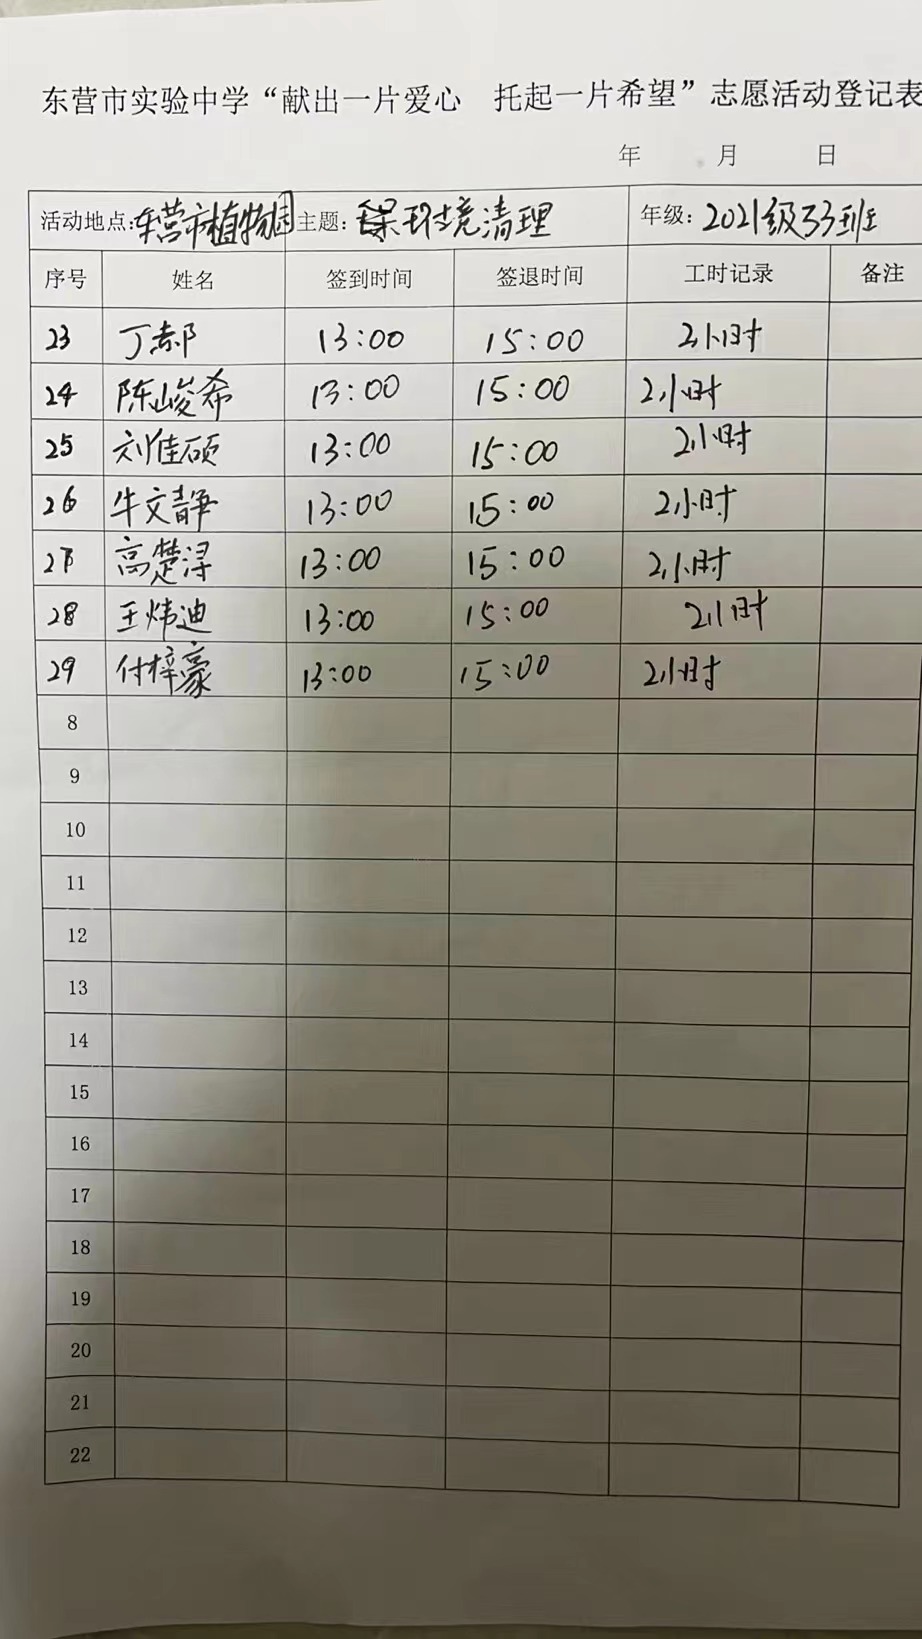 东营市实验中学“献出一片爱心 托起一片希望”志愿活动登记表
年 月 日
活动地点:东营市植物园 主题: 环境清理 年级: 2021级33班
序号 姓名 签到时间 签退时间 工时记录 备注
23 丁郝 13:00 15:00 2小时
24 陈峻希 13:00 15:00 2小时
25 刘佳硕 13:00 15:00 2小时
26 牛文静 13:00 15:00 2小时
27 高楚浔 13:00 15:00 2小时
28 王炜迪 13:00 15:00 2小时
29 付梓豪 13:00 15:00 2小时
8
9
10
11
12
13
14
15
16
17
18
19
20
21
22